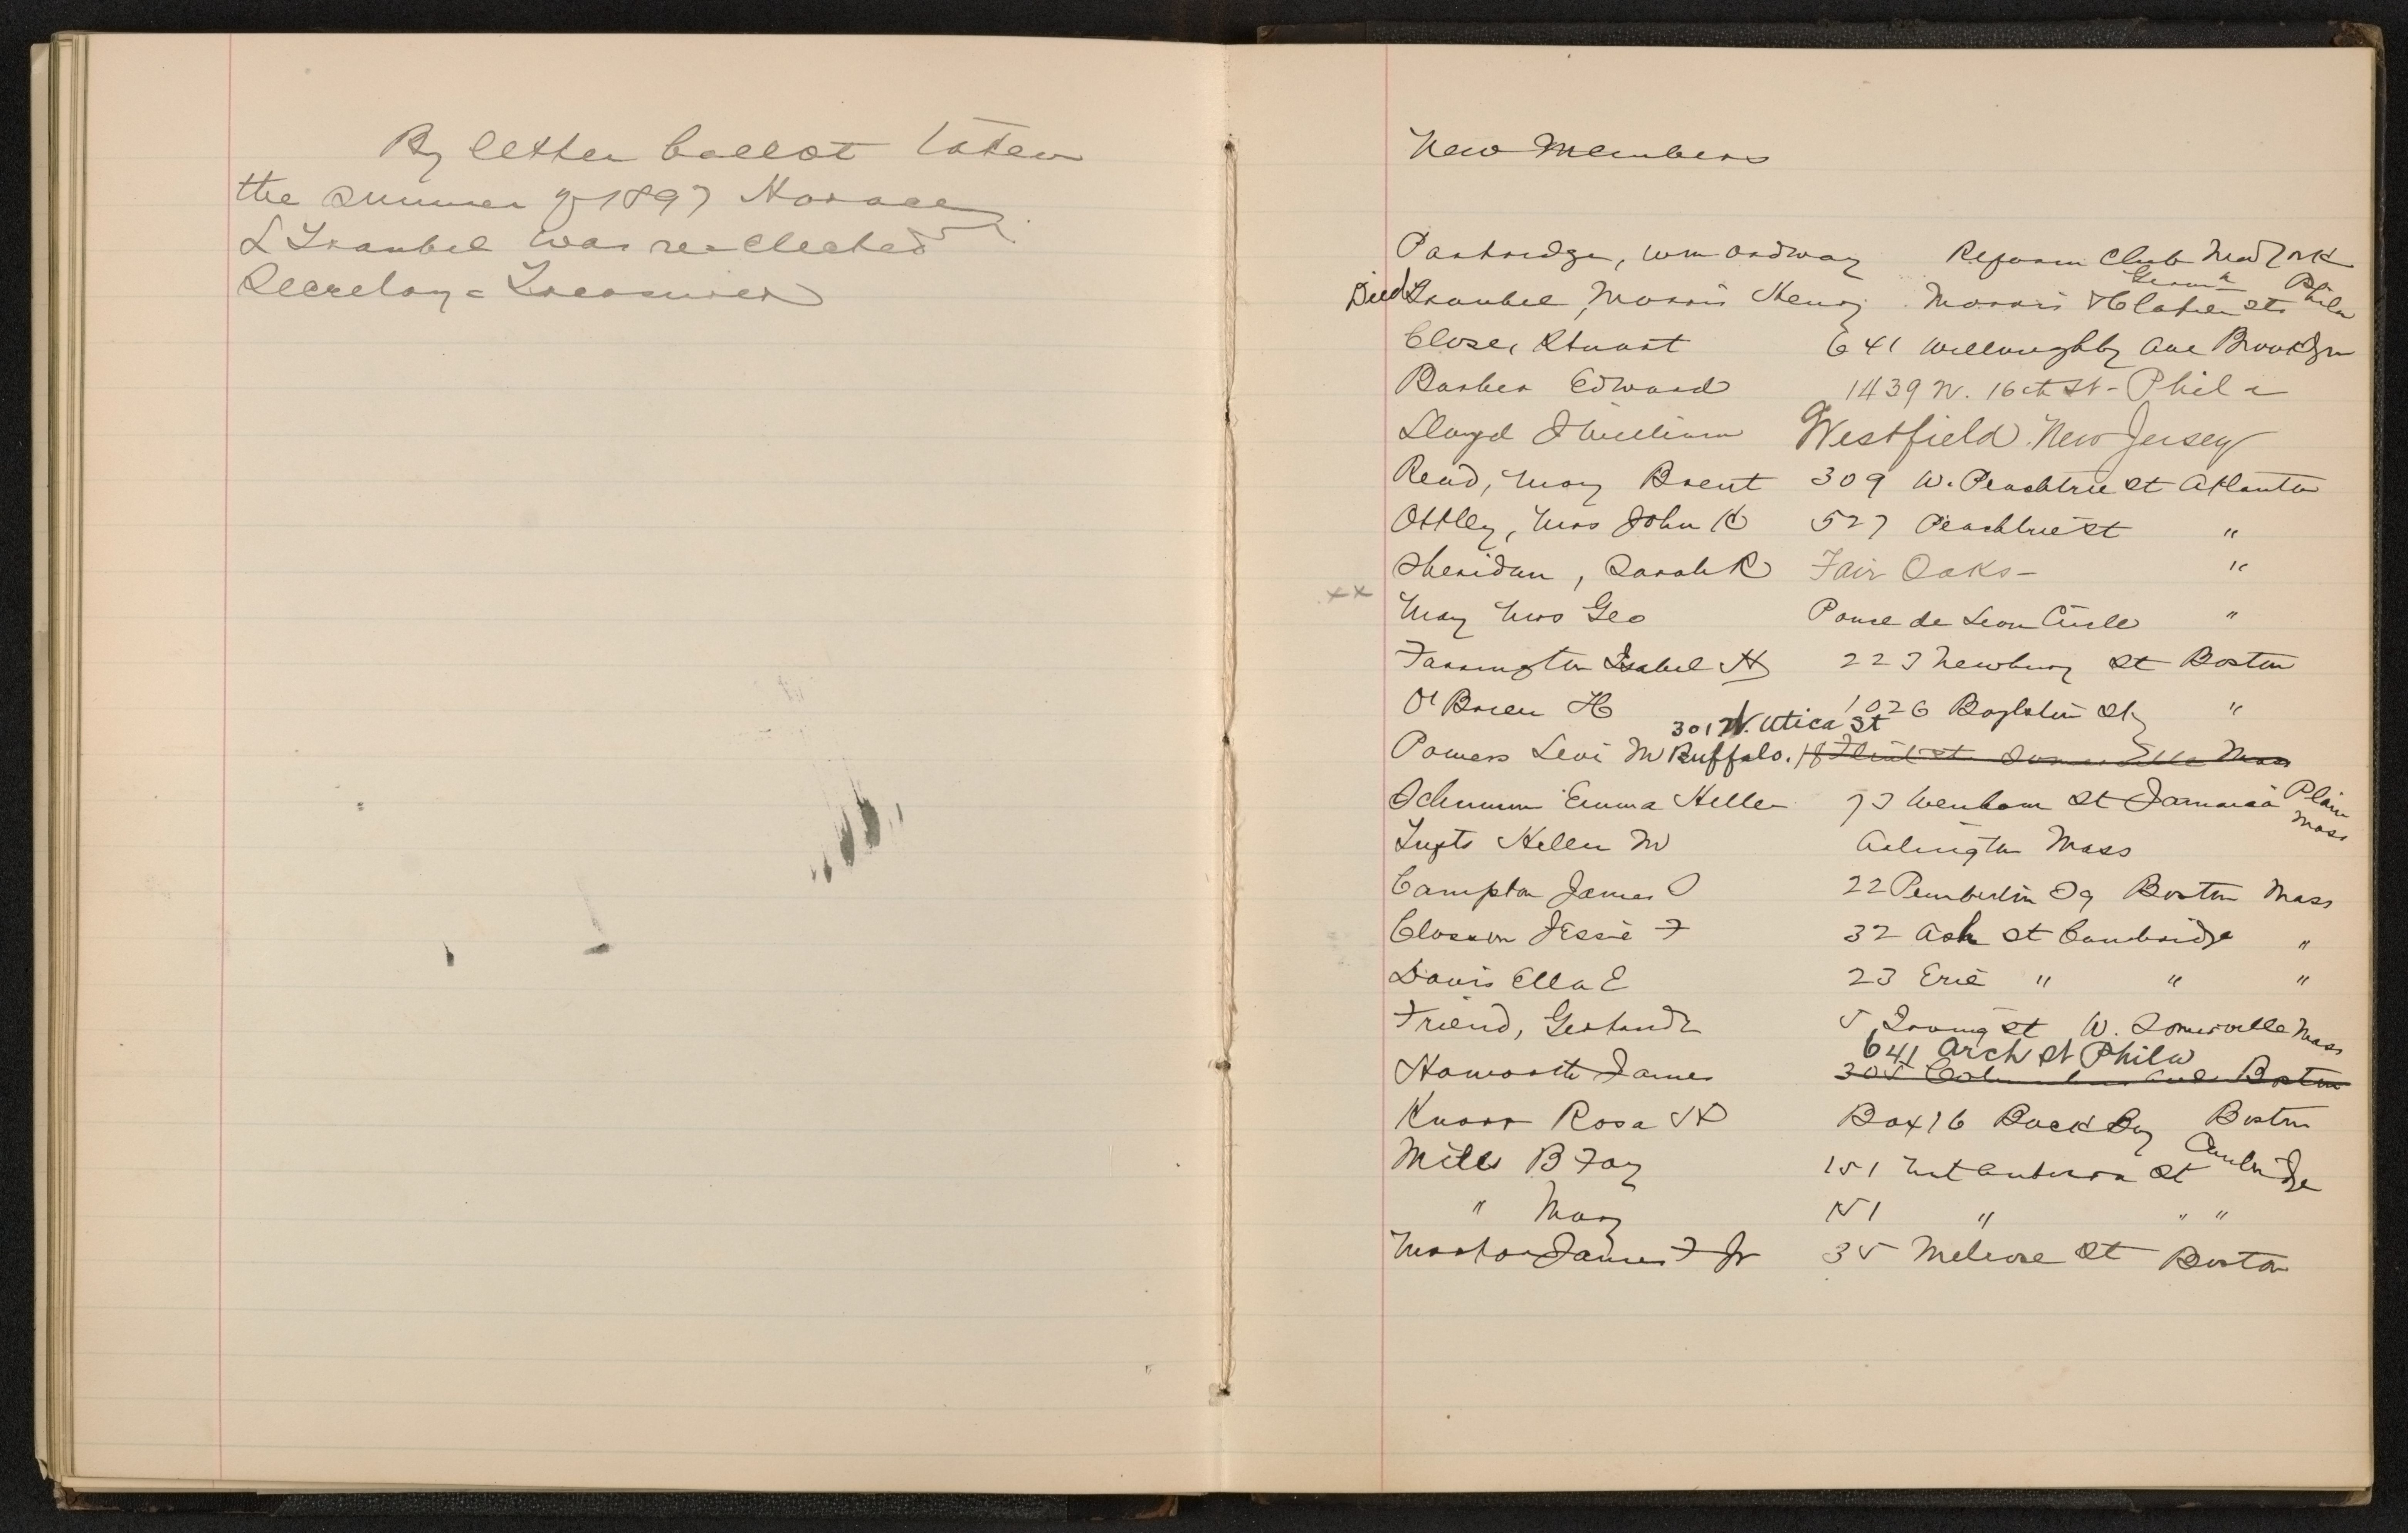 By letter ballot taken
the summer of 1897 Horace
L Traubel was re-elected
Secretary = Treasurer
New Members
Partridge, Wm Ordway Reform Club New York
Died Traubel, Morris Henry Morris & Clapier sts Phila
Close, Stuart 641 Willoughby Ave Brooklyn
Barker Edward 1439 N. 16th St - Phila
Lloyd J William Westfield New Jersey
Read, Mary Brent 309 W. Peachtree St Atlanta
Ottley, Mrs John K 527 Peachtree st "
Sheridan, Sarah R Fair Oaks - "
xx May Mrs Geo Ponce de Leon Circle "
Farrington Isabel H 223 Newbury St Boston
O'Brien H 1026 Boylston St "
301 W. Utica St
Powers Levi M Buffalo. Somerville Mass
Schumm Emma Heller 73 Wenham St Jamaica Plain Mass
Tufts Helen M Arlington Mass
Campton James 22 Pemberton Sq Boston Mass
Closson Jessie F 32 Ash St Cambridge "
Davis Ella E 23 Erie " " "
Friend, Gertrude 5 Irving St W. Somerville Mass
641 Arch St Phila
Haworth James 305 Columbus Ave Boston
Knorr Rosa H Box 16 Back Bay Boston
Mills B Fay 151 Mt Auburn St Cambridge
" Mary 151 " " "
Morton James F Jr 35 Melrose St Boston